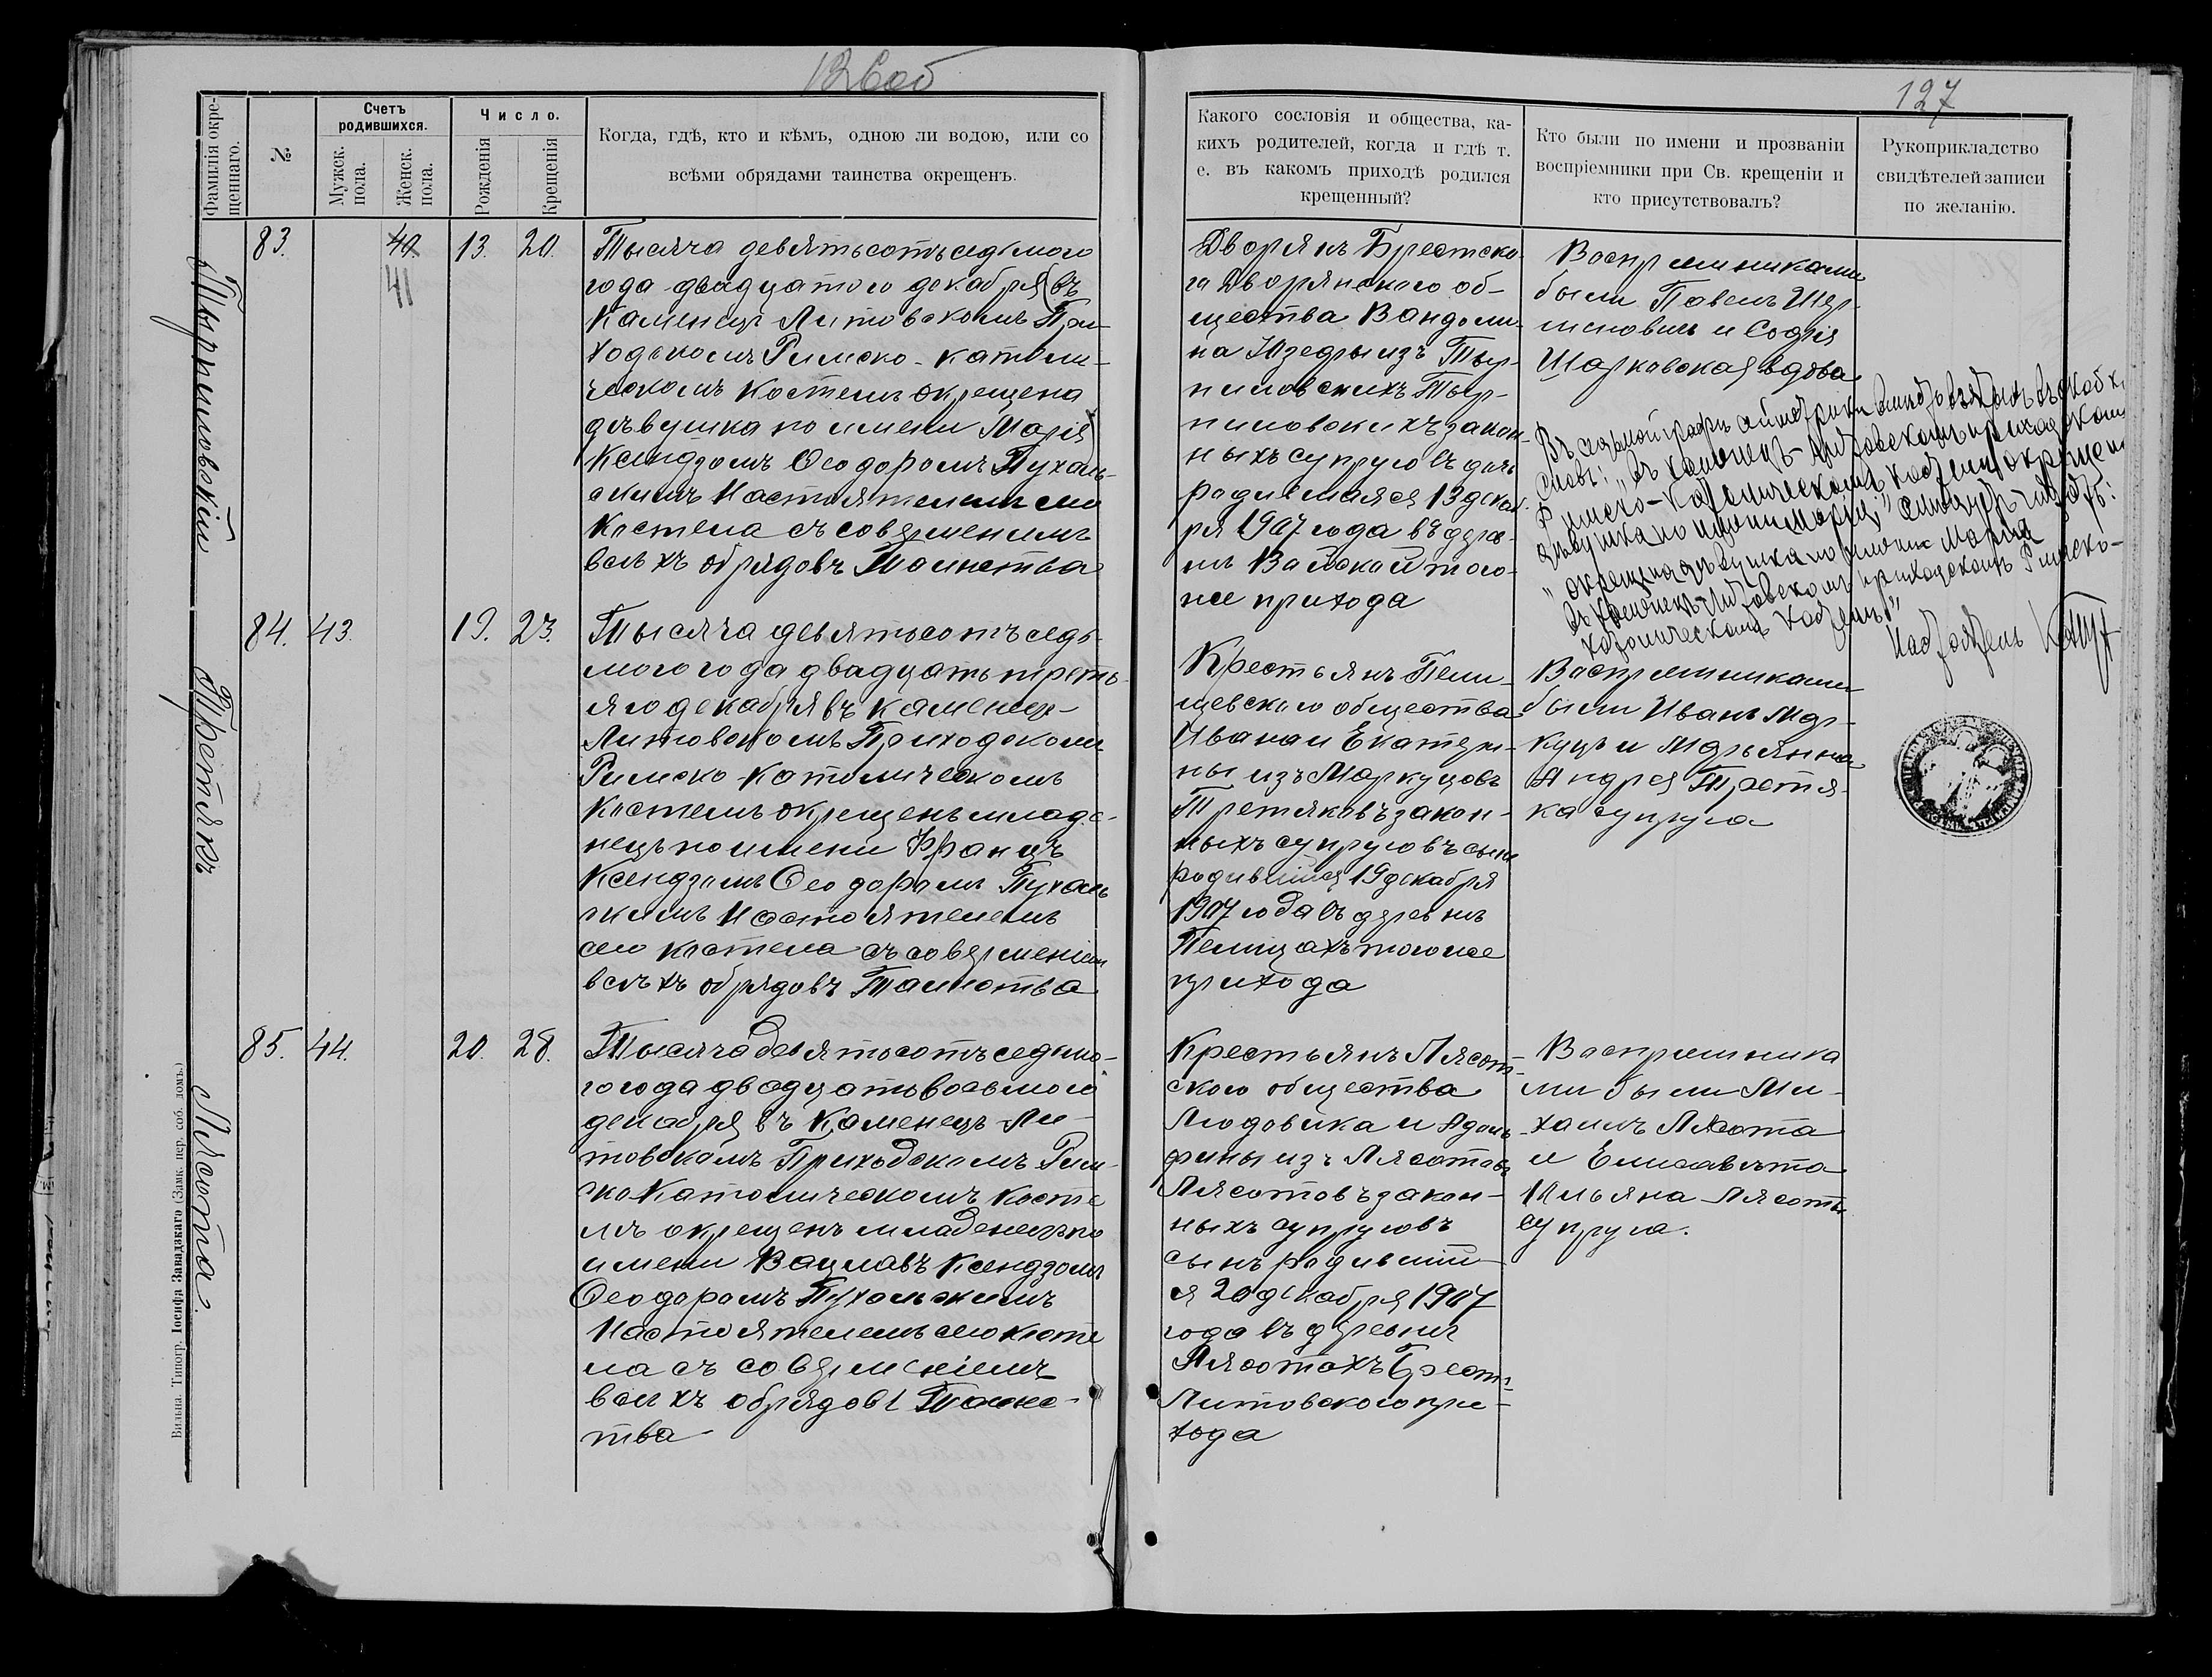 126об
127
Фамилія окре-
щеннаго.
№
Счетъ
родившихся.
Мужск.
пола.
Женск.
пола.
Число.
Рожденія
Крещенія
Когда, гдѣ, кто и кѣмъ, одною ли водою, или со
всѣми обрядами таинства окрещенъ.
Какого сословія и общества, ка-
кихъ родителей, когда и гдѣ т.
е. въ какомъ приходѣ родился
крещенный?
Кто были по имени и прозваніи
воспріемники при Св. крещеніи и
кто присутствовалъ?
Рукоприкладство
свидѣтелей записи
по желанію.
83.
40
41
13.
20.
Тысяча девятьсотъ седьмого
года двадцатого декабря (въ
Каменецъ Литовскомъ При-
ходскомъ Римско-католи-
ческомъ костелѣ окрещена
дѣвушка по имени Марія)
Ксендзомъ Ѳеодоромъ Пухаль-
скимъ Настоятелемъ сего
Костела съ совершеніемъ
всѣхъ обрядовъ Таинства
Дворянъ Брестско-
го Дворянского об-
щества
на Юзефы изъ Тыр-
пиловскихъ Тыр-
пиловскихъ закон-
ныхъ супруговъ дочь
родившаяся 13 декаб
ря 1907 года въ дерев-
нѣ Войской того-
же прихода
Воспріемниками
были Павелъ
и Софія
Шарковская вдова
Въ
словъ: „въ Каменецъ-Литовскомъ приходскомъ
Римско-Католическомъ костелѣ окрещена
дѣвушка по имени Марія"
„окрещена дѣвушка по имени Марія
въ Каменецъ-Литовскомъ приходскомъ Римско-
католическомъ костелѣ"
Настоятель
84.
43.
19.
23.
Тысяча девятьсотъ седь-
мого года двадцать треть-
яго декабря въ Каменецъ-
Литовскомъ Приходскомъ
Римско-католическомъ
костелѣ окрещенъ младе-
нецъ по имени Францъ
Ксендзомъ Ѳеодоромъ Пухаль
скимъ Настоятелемъ
сего костела съ совершеніемъ
всѣхъ обрядовъ Таинства
Крестьянъ Пели-
щевского общества
Ивана и Екатери-
ны изъ Маркуцовъ
Третяковъ закон-
ныхъ супруговъ сынъ
родившійся 19 декабря
1907 года въ деревнѣ
Пелищахъ того же
прихода
Воспріемниками
были Иванъ Мар-
куцъ и Марьянна
Андрея Третя-
ка супруга
85.
44.
20.
28.
Тысяча девятьсотъ седьмо-
го года двадцать восьмого
декабря въ Каменецъ Ли-
товскомъ Приходскомъ Рим-
ско Католическомъ косте
лѣ окрещенъ младенецъ по
имени Вацлавъ Ксендзомъ
Ѳеодоромъ Пухальскимъ
Настоятелемъ сего косте
ла съ совершеніемъ
всѣхъ обрядовъ Таинс-
тва
Крестьянъ Лясот-
ского общества
Людовика и Адоль-
фины изъ Лясотовъ
Лясотовъ закон-
ныхъ супруговъ
сынъ родившій-
ся 20 декабря 1907
года въ деревнѣ
Лясотахъ Брест-
Литовского при-
хода
Воспріемника
ми были Ми-
хаилъ Лясота
и Елисавета
Ильяна Лясоты
супруга.
Тырпиловскій
Третякъ
Лясота.
Вильна. Типогр. Іосифа Завадзкаго (Замк. пер. соб. домъ.)